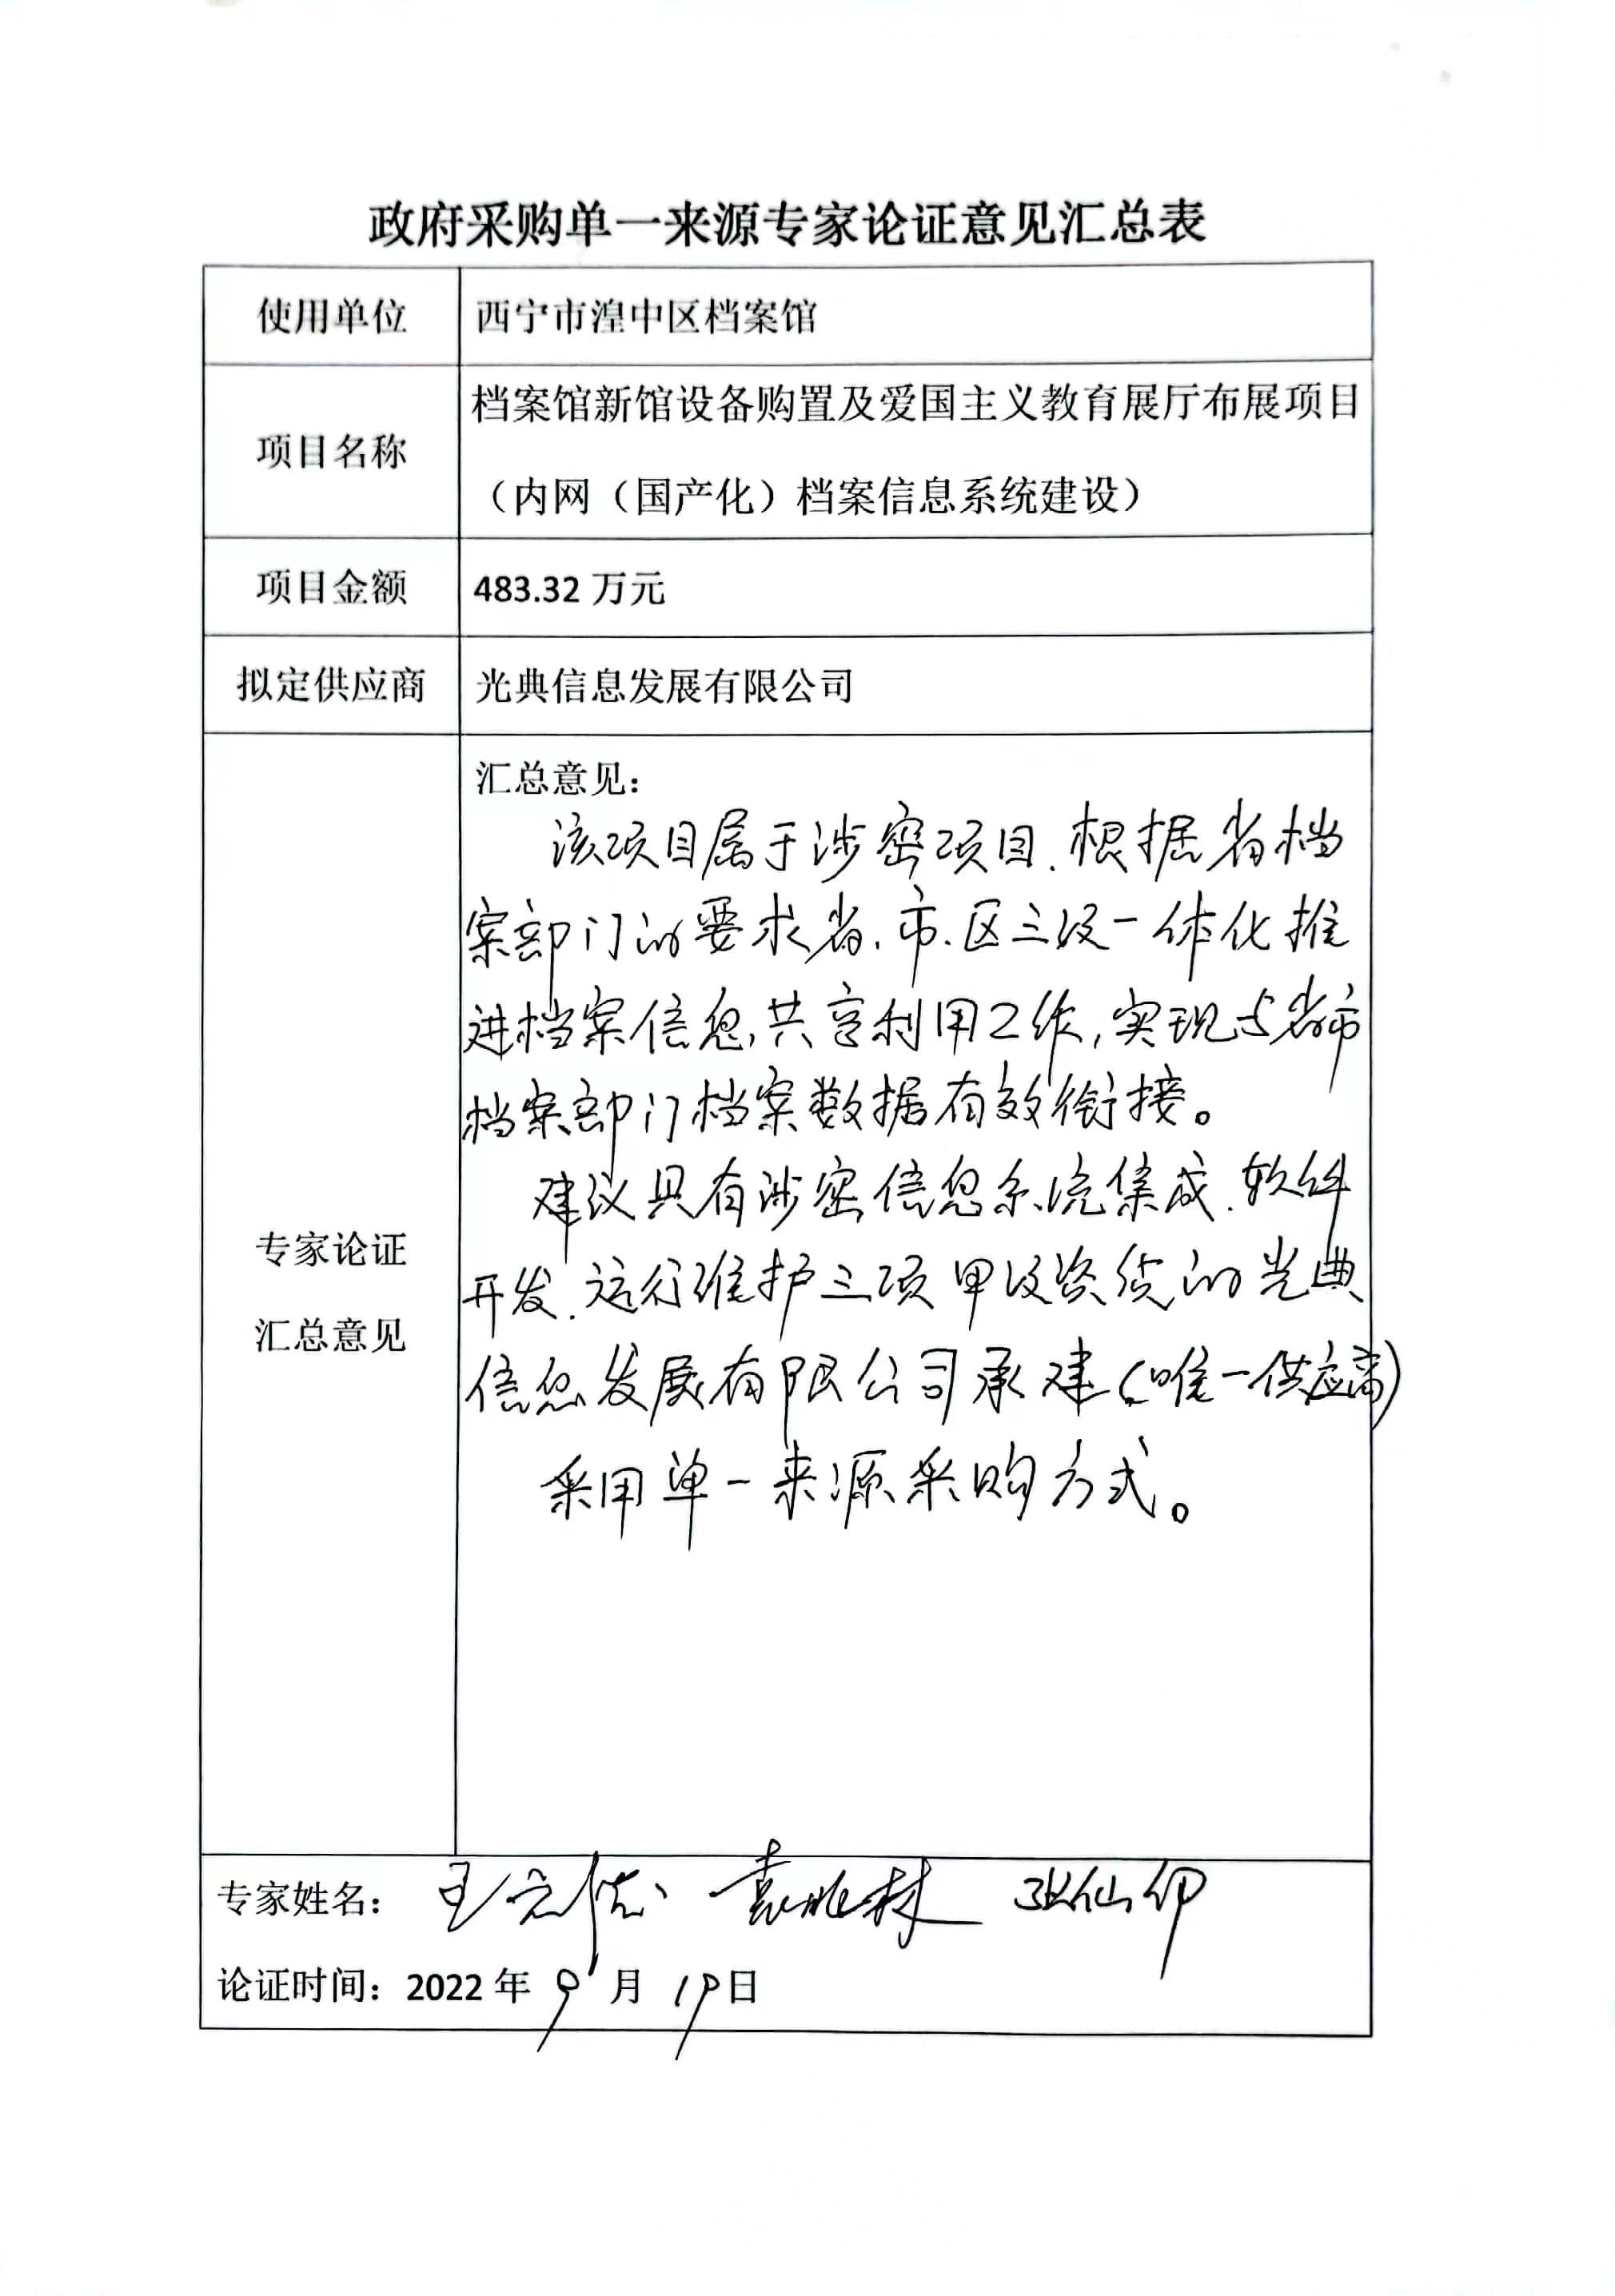 政府采购单一来源专家论证意见汇总表
使用单位
西宁市湟中区档案馆
项目名称
档案馆新馆设备购置及爱国主义教育展厅布展项目
（内网（国产化）档案信息系统建设）
项目金额
483.32 万元
拟定供应商
光典信息发展有限公司
专家论证
汇总意见
汇总意见：
该项目属于涉密项目.根据省档
案部门的要求省、市、区三级一体化推
进档案信息,共享利用工作,实现与省市
档案部门档案数据有效衔接。
建议具有涉密信息系统集成.软件
开发.运行维护三项甲级资质的光典
信息发展有限公司承建(唯一供应商)
采用单一来源采购方式。
专家姓名： 袁兆林
论证时间：2022 年 9 月 19 日